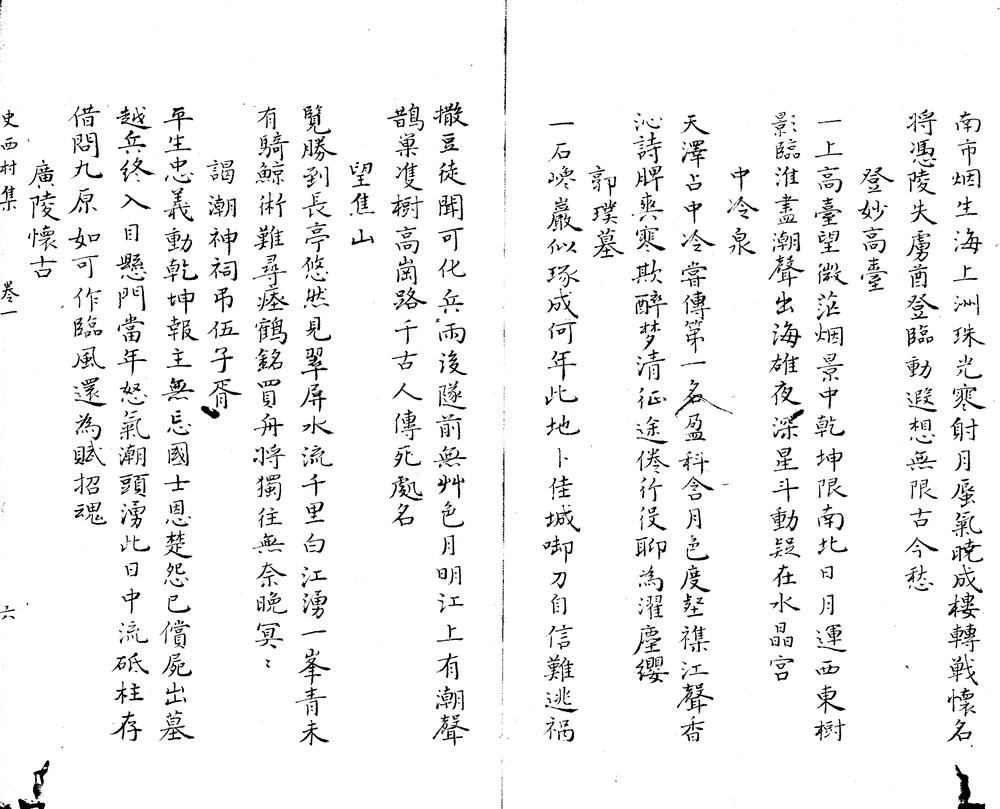 南市烟生海上洲珠光寒射月蜃氣曉成樓轉戰懷名
将憑陵失虜酋登臨動遐想無限古今愁
登妙高臺
一上高臺望微茫烟景中乾坤限南北日月運西東樹
影臨淮盡潮聲出海雄夜深星斗動疑在水晶宮
中冷泉
天澤占中冷嘗傳第一名盈科含月色度壑襍江聲香
沁詩脾爽寒欺醉梦清征途倦行役聊為濯塵纓
郭璞墓
一石巉巖似琢成何年此地卜佳城啣刀自信難逃禍
撒豆徒聞可化兵雨後隧前無艸色月明江上有潮聲
鵲巢隻樹高崗路千古人傳死處名
望焦山
覽勝到長亭悠然見翠屏水流千里白江湧一峯青未
有騎鯨術難尋瘗鶴銘買舟将獨往無奈晚冥〻
謁潮神祠吊伍子胥
平生忠義動乾坤報主無忘國士恩楚怨已償屍出墓
越兵終入目懸門當年怒氣潮頭湧此日中流砥柱存
借問九原如可作臨風還為賦招魂
廣陵懷古
史西村集 卷一 六